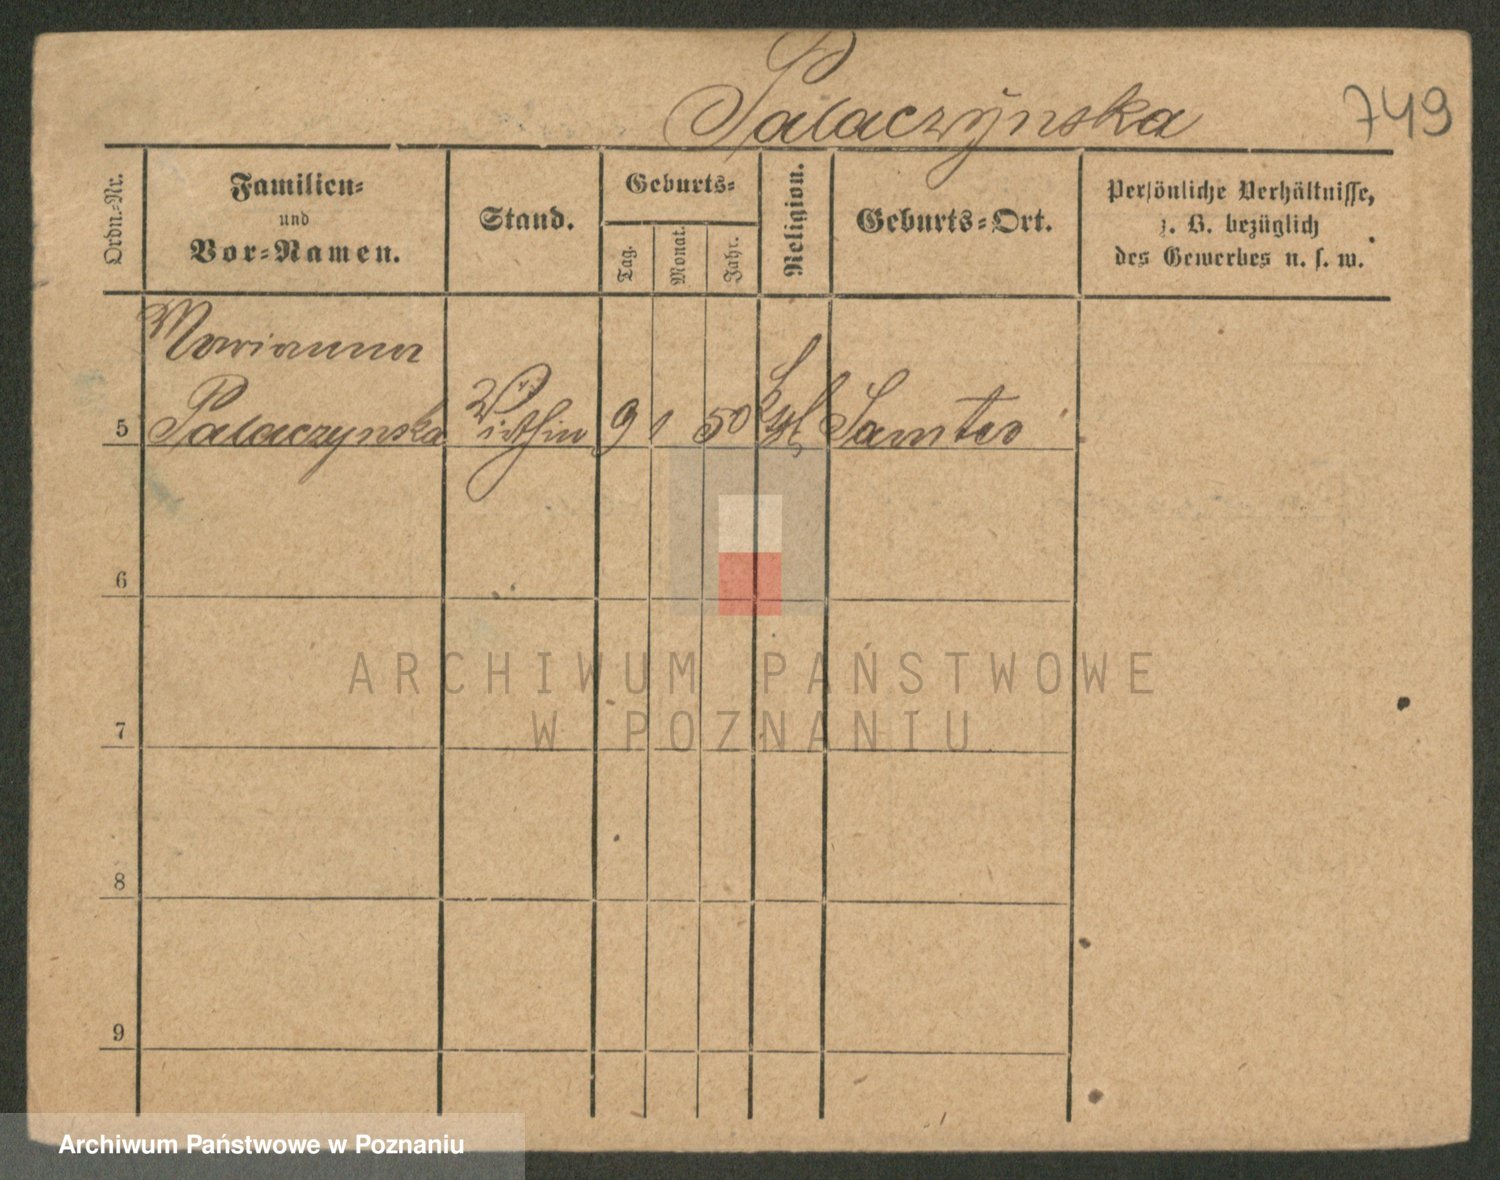 Palaczÿnska
749
Ordn.-Nr.
Familien-
und
Vor-Namen.
Stand.
Geburts-
Tag.
Monat.
Jahr.
Religion.
Geburts-Ort.
Persönliche Verhältnisse,
z. B. bezüglich
des Gewerbes u. s. w.
Marianna
5 Palaczynska 9 1 50 Samter
6
7
8
9
ARCHIWUM PAŃSTWOWE
W POZNANIU
Archiwum Państwowe w Poznaniu